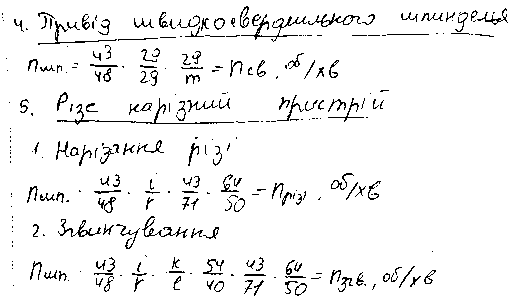 4. Привід швидкосвердлильного шпинделя
nшп. = 43/48 · 29/29 · 29/m = nсв, об/хв
5. Різе нарізний пристрій
1. Нарізання різі
nшп. · 43/48 · i/r · 43/71 · 64/50 = nрізі, об/хв
2. Звинчування
nшп. · 43/48 · i/r · k/l · 54/40 · 43/71 · 64/50 = nзгв., об/хв